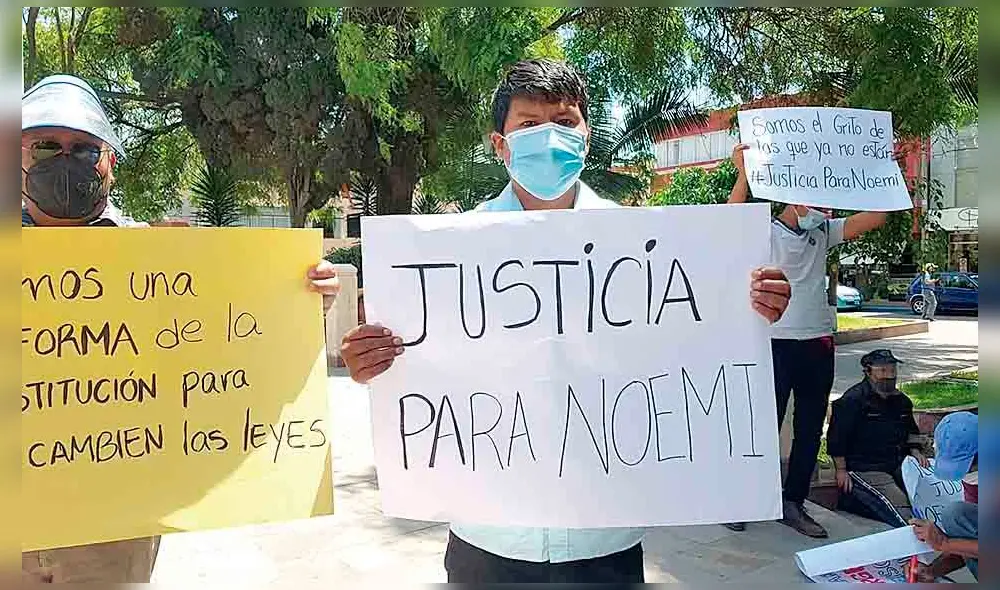 mos una
FORMA de la
STITUCIÓN para
CAMBIEN las lEYES
JUSTiCiA
PARA NOEMI
Somos el GriTo de
las que ya no están
#Justicia Para Noemi